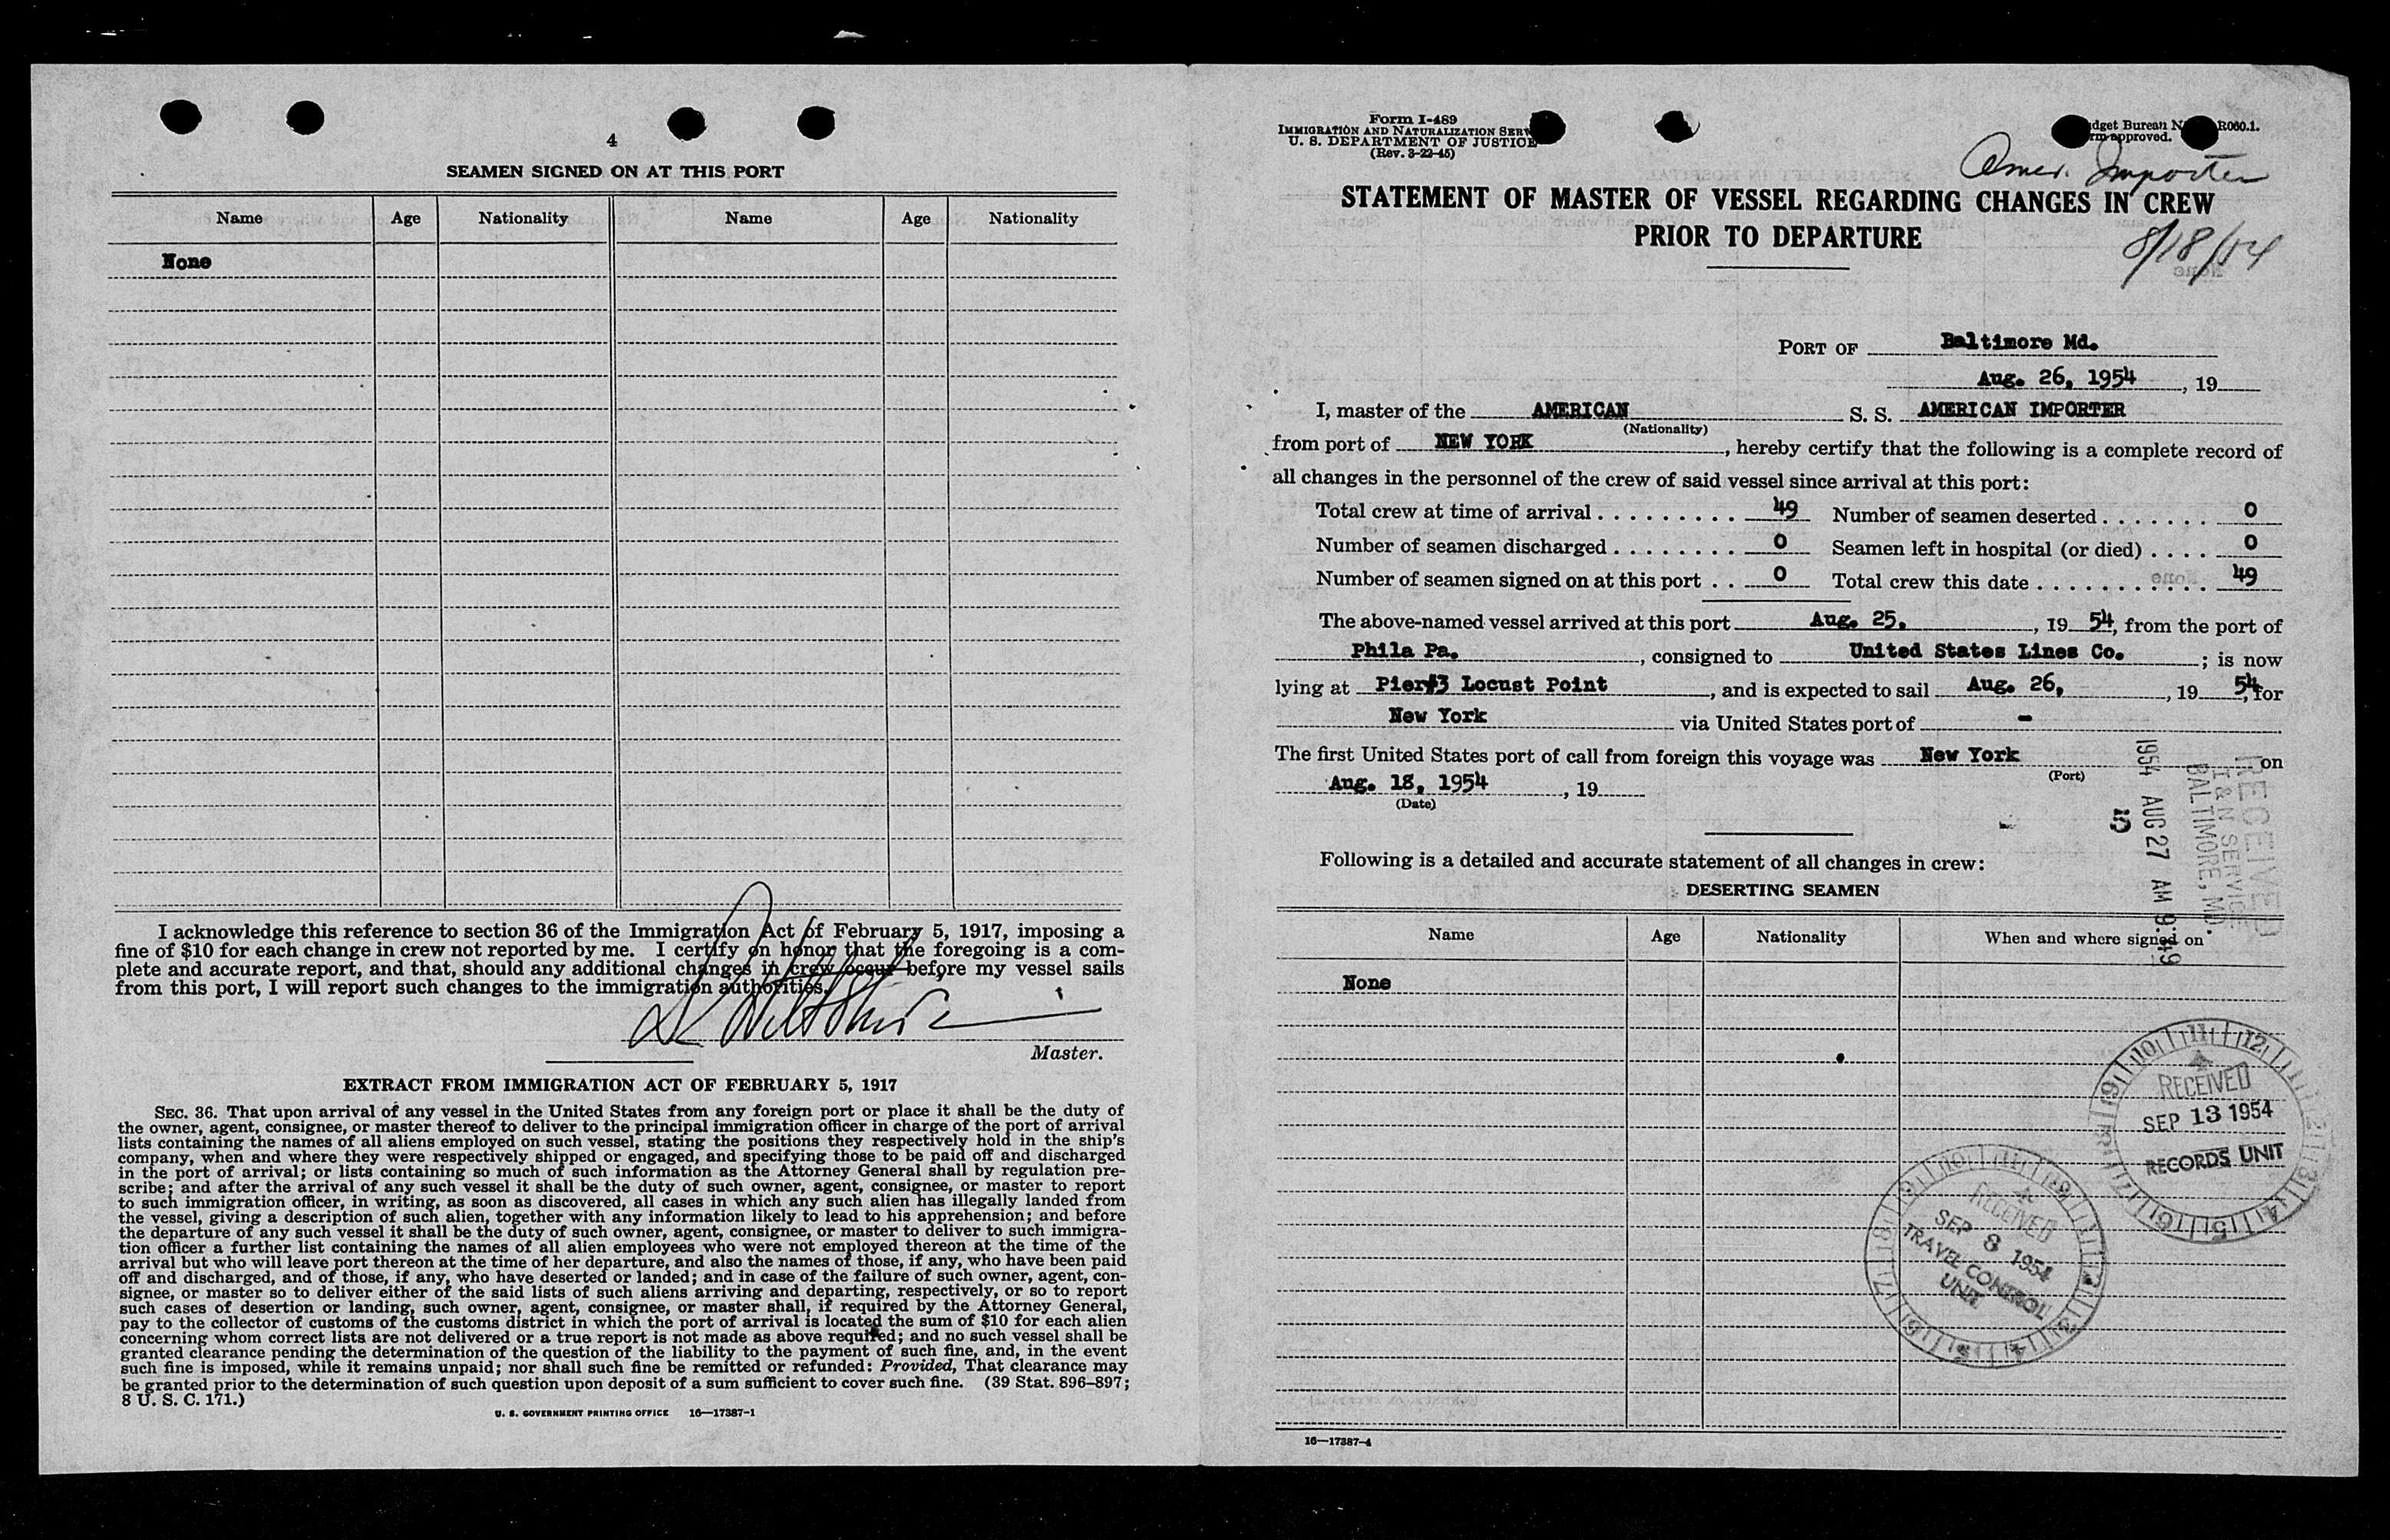 4
SEAMEN SIGNED ON AT THIS PORT
Name Age Nationality Name Age Nationality
None
I acknowledge this reference to section 36 of the Immigration Act of February 5, 1917, imposing a
fine of $10 for each change in crew not reported by me. I certify on honor that the foregoing is a com-
plete and accurate report, and that, should any additional changes in crew occur before my vessel sails
from this port, I will report such changes to the immigration authorities.
Master.
EXTRACT FROM IMMIGRATION ACT OF FEBRUARY 5, 1917
SEC. 36. That upon arrival of any vessel in the United States from any foreign port or place it shall be the duty of
the owner, agent, consignee, or master thereof to deliver to the principal immigration officer in charge of the port of arrival
lists containing the names of all aliens employed on such vessel, stating the positions they respectively hold in the ship's
company, when and where they were respectively shipped or engaged, and specifying those to be paid off and discharged
in the port of arrival; or lists containing so much of such information as the Attorney General shall by regulation pre-
scribe; and after the arrival of any such vessel it shall be the duty of such owner, agent, consignee, or master to report
to such immigration officer, in writing, as soon as discovered, all cases in which any such alien has illegally landed from
the vessel, giving a description of such alien, together with any information likely to lead to his apprehension; and before
the departure of any such vessel it shall be the duty of such owner, agent, consignee, or master to deliver to such immigra-
tion officer a further list containing the names of all alien employees who were not employed thereon at the time of the
arrival but who will leave port thereon at the time of her departure, and also the names of those, if any, who have been paid
off and discharged, and of those, if any, who have deserted or landed; and in case of the failure of such owner, agent, con-
signee, or master so to deliver either of the said lists of such aliens arriving and departing, respectively, or so to report
such cases of desertion or landing, such owner, agent, consignee, or master shall, if required by the Attorney General,
pay to the collector of customs of the customs district in which the port of arrival is located the sum of $10 for each alien
concerning whom correct lists are not delivered or a true report is not made as above required; and no such vessel shall be
granted clearance pending the determination of the question of the liability to the payment of such fine, and, in the event
such fine is imposed, while it remains unpaid; nor shall such fine be remitted or refunded: Provided, That clearance may
be granted prior to the determination of such question upon deposit of a sum sufficient to cover such fine. (39 Stat. 896–897;
8 U. S. C. 171.)
U. S. GOVERNMENT PRINTING OFFICE 16—17387-1
Form I-489
IMMIGRATION AND NATURALIZATION SERV
U. S. DEPARTMENT OF JUSTICE
(Rev. 3-22-45)
dget Bureau N R060.1.
rm approved.
Amer. Importer
STATEMENT OF MASTER OF VESSEL REGARDING CHANGES IN CREW
PRIOR TO DEPARTURE
8/18/54
PORT OF Baltimore Md.
Aug. 26, 1954, 19
I, master of the AMERICAN S. S. AMERICAN IMPORTER
(Nationality)
from port of NEW YORK, hereby certify that the following is a complete record of
all changes in the personnel of the crew of said vessel since arrival at this port:
Total crew at time of arrival 49 Number of seamen deserted 0
Number of seamen discharged 0 Seamen left in hospital (or died) 0
Number of seamen signed on at this port 0 Total crew this date 49
The above-named vessel arrived at this port Aug. 25, 19 54, from the port of
Phila Pa., consigned to United States Lines Co.; is now
lying at Pier#3 Locust Point, and is expected to sail Aug. 26, 19 54, for
New York via United States port of -
The first United States port of call from foreign this voyage was New York on
(Port)
Aug. 18, 1954, 19
(Date)
RECEIVED
I & N SERVICE
BALTIMORE, MD.
1954 AUG 27 AM 9:49
5
Following is a detailed and accurate statement of all changes in crew:
DESERTING SEAMEN
Name Age Nationality When and where signed on
None
RECEIVED
SEP 13 1954
RECORDS UNIT
RECEIVED
SEP 8 1954
TRAVEL CONTROL
UNIT
16—17387-4